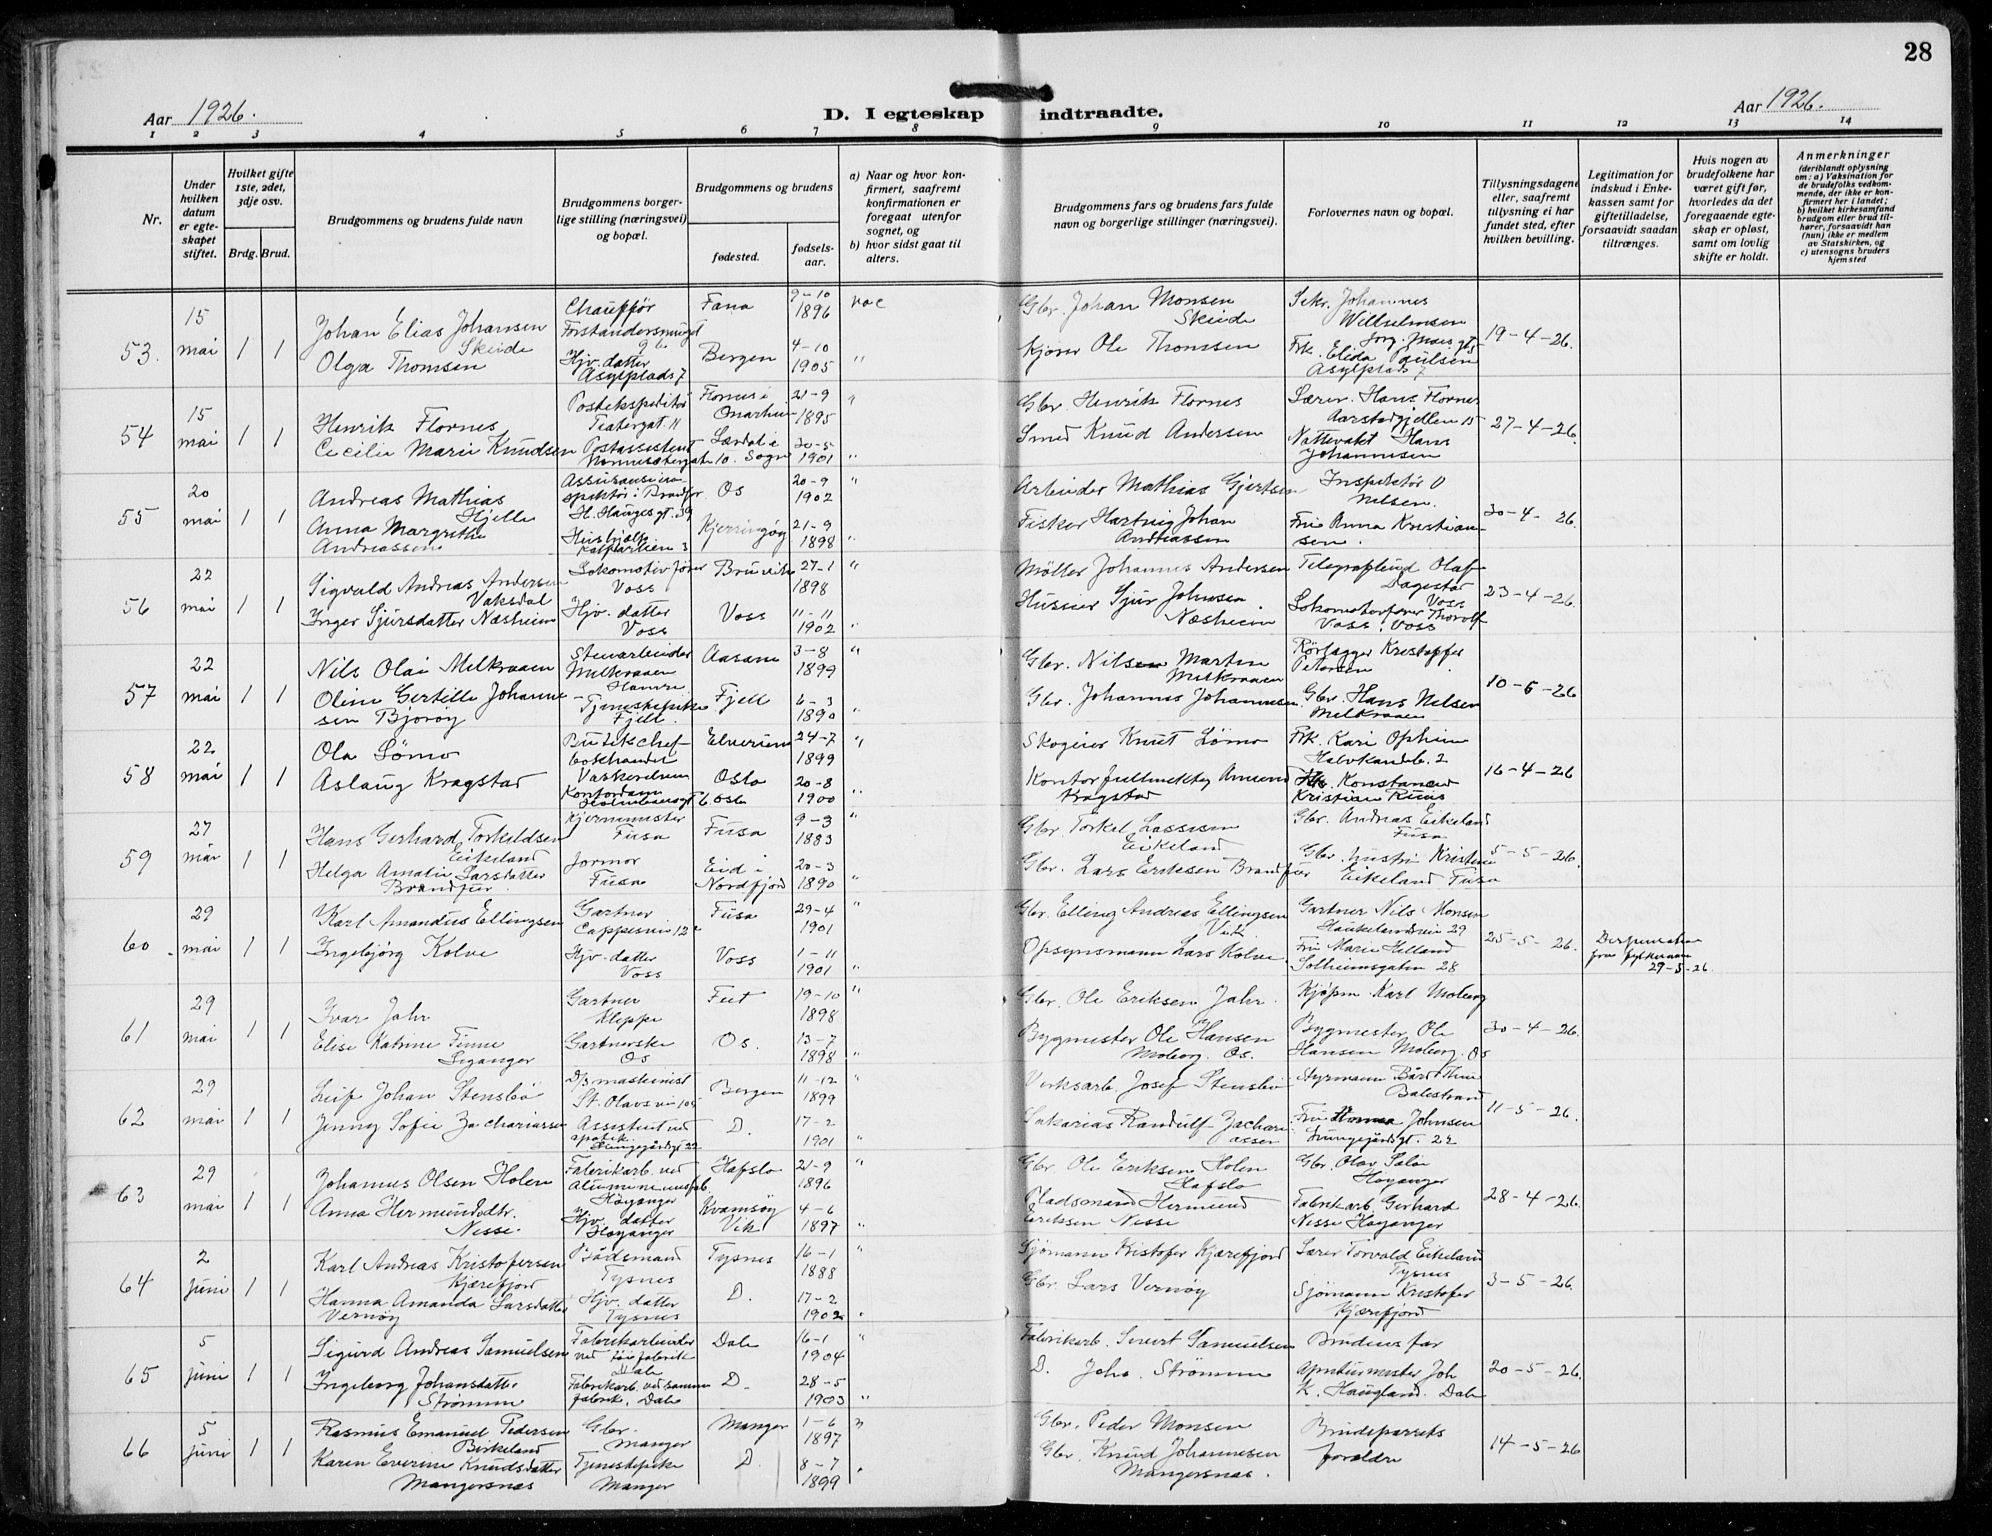 28
Aar 1926.
D. I egteskap indtraadte.
Aar 1926.
1 2 3 4 5 6 7 8 9 10 11 12 13 14
Nr.
Under hvilken datum er egteskapet stiftet.
Hvilket gifte 1ste, 2det, 3dje osv.
Brdg. Brud.
Brudgommens og brudens fulde navn
Brudgommens borgerlige stilling (næringsvei) og bopæl.
Brudgommens og brudens
fødested.
fødsels-aar.
a) Naar og hvor konfirmert, saafremt konfirmationen er foregaat utenfor sognet, og
b) hvor sidst gaat til alters.
Brudgommens fars og brudens fars fulde navn og borgerlige stillinger (næringsvei).
Forlovernes navn og bopæl.
Tillysningsdagene eller, saafremt tillysning ei har fundet sted, efter hvilken bevilling.
Legitimation for indskud i Enkekassen samt for giftetilladelse, forsaavidt saadan tiltrænges.
Hvis nogen av brudefolkene har været gift før, hvorledes da det foregaaende egteskap er opløst, samt om lovlig skifte er holdt.
Anmerkninger
(deriblandt oplysning om: a) Vaksination for de brudefolks vedkommende, der ikke er konfirmert her i landet; b) hvilket kirkesamfund brudgom eller brud tilhører, forsaavidt han (hun) ikke er medlem av Statskirken, og c) utensogns bruders hjemsted
53. 15 mai 1 1
Johan Elias Johansen Skeide
Chauffør
Fana 9-10 1896 vac
Gbr. Johan Monsen Skeide
Sekr. Johannes Wilhelmsen
19-4-26.
Olga Thomsen
Hjv. datter Asylplads 7
Bergen 4-10 1905 "
Kjører Ole Thomsen
Frk. Elida Poulsen Asylplads 7
54 15 mai 1 1
Henrik Flornes
Postekspeditør Teatergat 11
21-9 1895 "
Gbr. Henrik Flornes
Lærer. Hans Flornes
27-4-26.
Cecilie Marie Knudsen
Postassistent
Lærdal i Sogn 30-5 1901 "
Smed Knud Andersen
Nattevakt Hans Johannesen
55 20 mai 1 1
Andreas Mathias Hjelle
H. Hauges gt. 39
Os 20-9 1902 "
Arbeider Mathias Gjertsen
Inspektør O Nilsen.
30-4-26.
Anna Margrethe Andreassen
Kjerringøy 21-9 1898 "
Fisker Hartvig Johan Andreassen
Fru Anna Kristiansen.
56 22 mai 1 1
Sigvald Andreas Andersen Vaksdal
Lokomotivfører Voss
Bruvik 27-1 1898 "
Møller Johannes Andersen
Olaf Dagestad Voss
23-4-26.
Inger Sjursdatter Næsheim
Hjv. datter Voss
Voss 11-11 1902 "
Husmer Sjur Johnsen Næsheim
Voss. Voss
57 22 mai 1 1
Nils Olai Melkraaen
Stenarbeider Melkraaen
Aasane 3-8 1899 "
Gbr. Nilsen Martin Melkraaen
Rørlægger Kristoffer Petersen
10-5-26
Oline Gertille Johannesen Bjorøy
Tjenestepike Fjell.
Fjell 6-3 1890 "
Gbr. Johannes Johannesen
Gbr. Hans Nilsen Melkraaen
58 22 mai 1 1
Ola Lømo
Elverum 24-7 1899 "
Skogeier Knut Lømo
Frk. Kari
16-4-26
Aslaug Kragstad
Kontordame
Oslo 20-8 1900 "
Kontorfuldmektig Amund Kragstad
Kristian
59 27 mai 1 1
Hans Gerhard Torkildsen Eikeland
Fusa
Fusa 9-3 1883 "
Gbr Torkel Lassesen Eikeland
Gbr. Andreas Eikeland Fusa
5-5-26.
Helga Amalie Larsdatter Brandsøer
Jormor Fusa
Eid i Nordfjord 20-3 1890 "
Gbr. Lars Eriksen
Gbr. hustru Kristine Eikeland Fusa
60. 29 mai 1 1
Karl Amandus Ellingsen
Gartner
Fusa 29-4 1901 "
Gbr. Elling Andreas Ellingsen Vik
Gartner Nils Monsen Haukelandsvei 29
25-5-26.
Dispensation fra fylkesman 29-5-26.
Ingebjørg Kolve
Hjv. datter Voss
Voss 1-11 1901 "
Opsynsmann Lars Kolve
Fru Marie Helland Solheimsgaten 28
61 29 mai 1 1
Ivar Jahr
Gartner Kleppe
19-10 1898 "
Gbr. Ole Eriksen Jahr.
Kjøpm. Karl Moberg
30-4-26.
Elise Katrine Finne
Gartnerske Os
Os. 13-7 1898 "
Bygmester Ole Hansen Moberg. Os.
Bygmester Ole Hansen Moberg. Os
62 29 mai 1 1
Leif Johan Stensbø
D/S maskinist St. Olavs vei 10
Bergen 11-12 1899 "
Verksarb. Josef Stensbø
Styrmann Bård Balestrand
11-5-26.
Jenny Sofie Zachariassen
Assistent ved apotek.
D. 17-2 1901 "
Sakarias Randulf Zachariassen
Fru Johnsen Lungegårdsgt. 22
63 29 mai 1 1
Johannes Olsen Holen
Fabrikarb. ved Høyanger
Hafslo 21-9 1896 "
Gbr. Ole Eriksen Holen Hafslo
Gbr. Olav Høyanger
28-4-26.
Anna Hermundsdtr. Nesse.
Hjv. datter Høyanger
Kvamsøy Vik 4-6 1897 "
Pladsmand Hermund Eriksen Nesse
Fabrikarb Gerhard Nesse Høyanger
64 2 juni 1 1
Karl Andreas Kristofersen Kjærefjord
Tysnes
Tysnes 16-1 1888 "
Sjømann Kristofer Kjærefjord
Lærer Torvald Eikeland Tysnes
3-5-26.
Hanna Amanda Larsdatter Vernøy
Hjv. datter Tysnes
D. 17-2 1902 "
Gbr. Lars Vernøy
Sjømann Kristofer Kjærefjord
65 5 juni 1 1
Sigurd Andreas Samuelsen
Fabrikarbeider ved fabrik Dale
Dale 16-1 1904 "
Fabrikarb. Sivert Samuelsen
Brudens far
20-5-26.
Ingeborg Johansdatter Strømme
Fabrikarb. ved samme fabrik, Dale
D. 28-5 1903 "
D. Joh. Strømme
Joh K. Haugland. Dale
66 5 juni 1 1
Rasmus Emanuel Pedersen Birkeland
Gbr. Manger
Manger 1-6 1897 "
Gbr. Peder Monsen
Brudeparrets foreldre
14-5-26
Karen Everine Knudsdatter Mangersnæs
Tjenestepike Manger
D. 8-7 1899 "
Gbr. Knud Johannesen Mangersnæs.